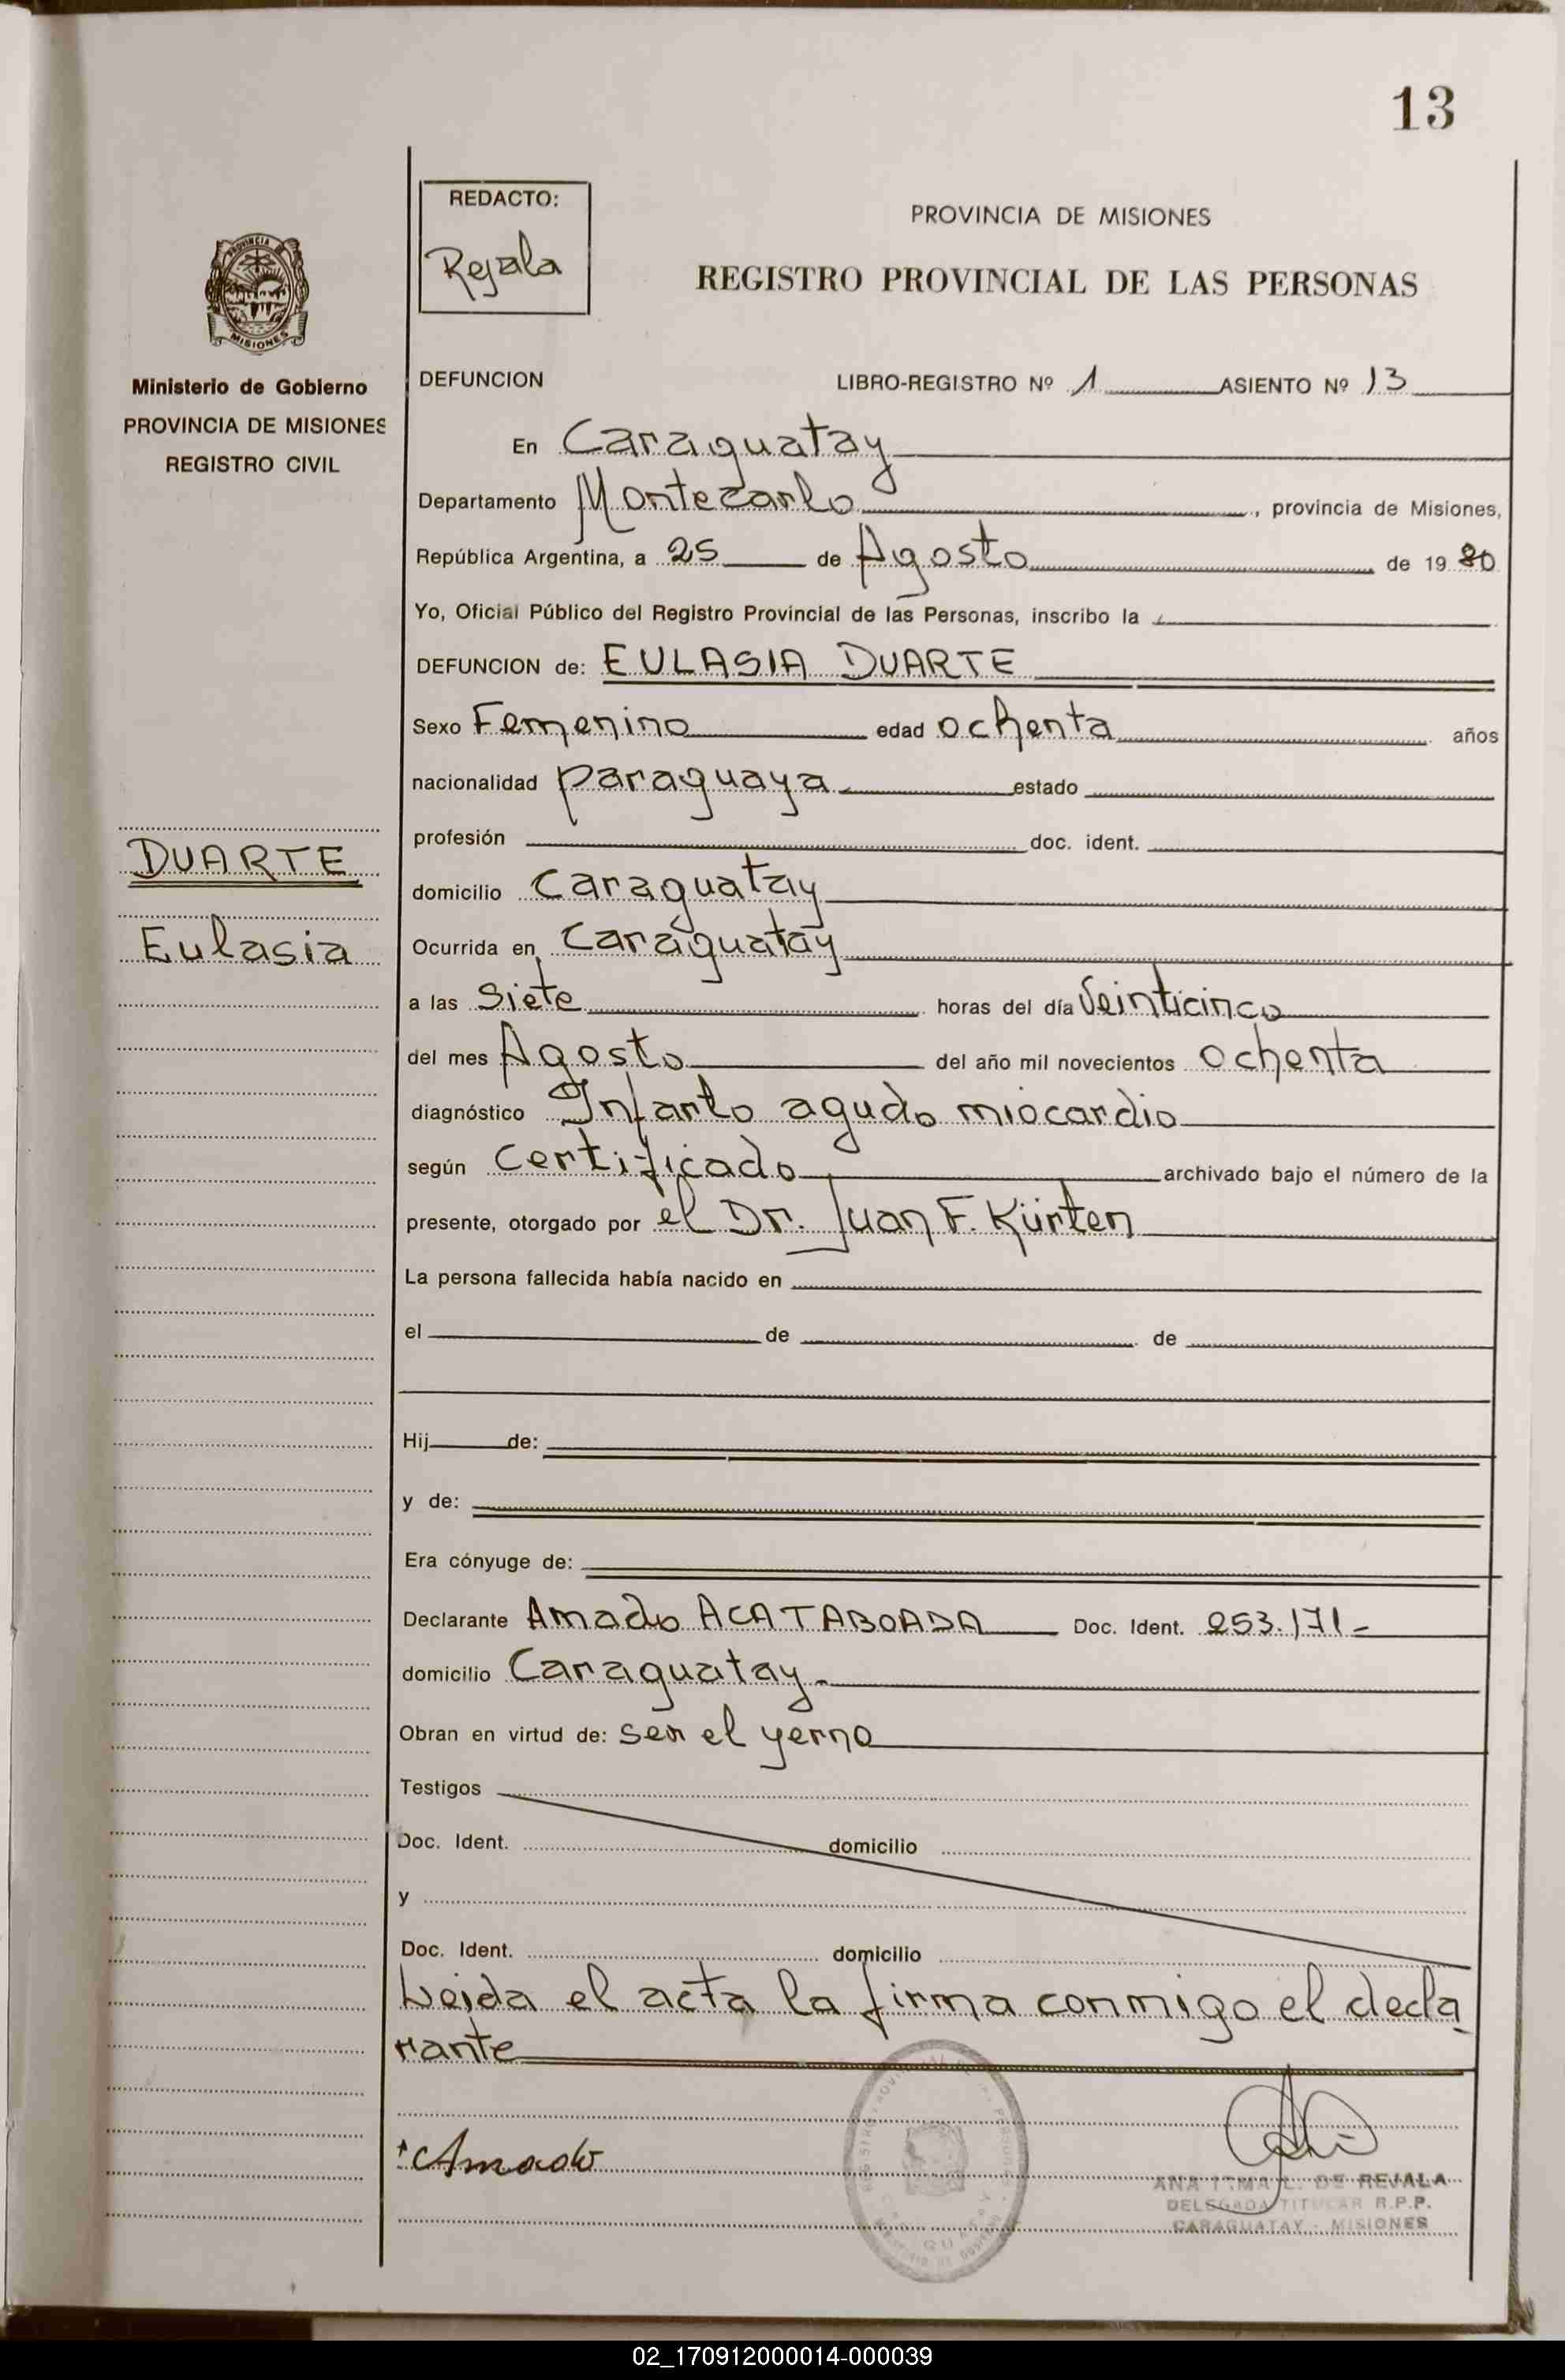 13
REDACTO:
Rejala
PROVINCIA DE MISIONES
REGISTRO PROVINCIAL DE LAS PERSONAS
PROVINCIA DE
MISIONES
Ministerio de Gobierno
PROVINCIA DE MISIONES
REGISTRO CIVIL
DEFUNCION LIBRO-REGISTRO Nº 1 ASIENTO Nº 13
En Caraguatay
Departamento Montecarlo, provincia de Misiones,
República Argentina, a 25 de Agosto de 1980
Yo, Oficial Público del Registro Provincial de las Personas, inscribo la
DEFUNCION de: EULASIA DUARTE
Sexo Femenino edad ochenta años
nacionalidad paraguaya estado
profesión doc. ident.
DUARTE
Eulasia
domicilio Caraguatay
Ocurrida en Caraguatay
a las siete horas del día veinticinco
del mes Agosto del año mil novecientos ochenta
diagnóstico Infarto agudo miocardio
según certificado archivado bajo el número de la
presente, otorgado por el Dr. Juan F. Kürten
La persona fallecida había nacido en
el de de
Hij de:
y de:
Era cónyuge de:
Declarante Amado ACATABOADA Doc. Ident. 253.171-
domicilio Caraguatay.
Obran en virtud de: ser el yerno
Testigos
Doc. Ident. domicilio
y
Doc. Ident. domicilio
Leida el acta la firma conmigo el decla
rante
Amado
ANA IRMA L. DE REJALA
DELEGADA TITULAR R.P.P.
CARAGUATAY - MISIONES
02_170912000014-000039